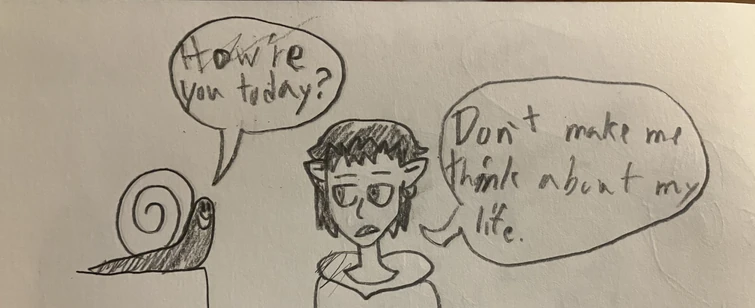 How're
you today?
Don't make me
think about my
life.